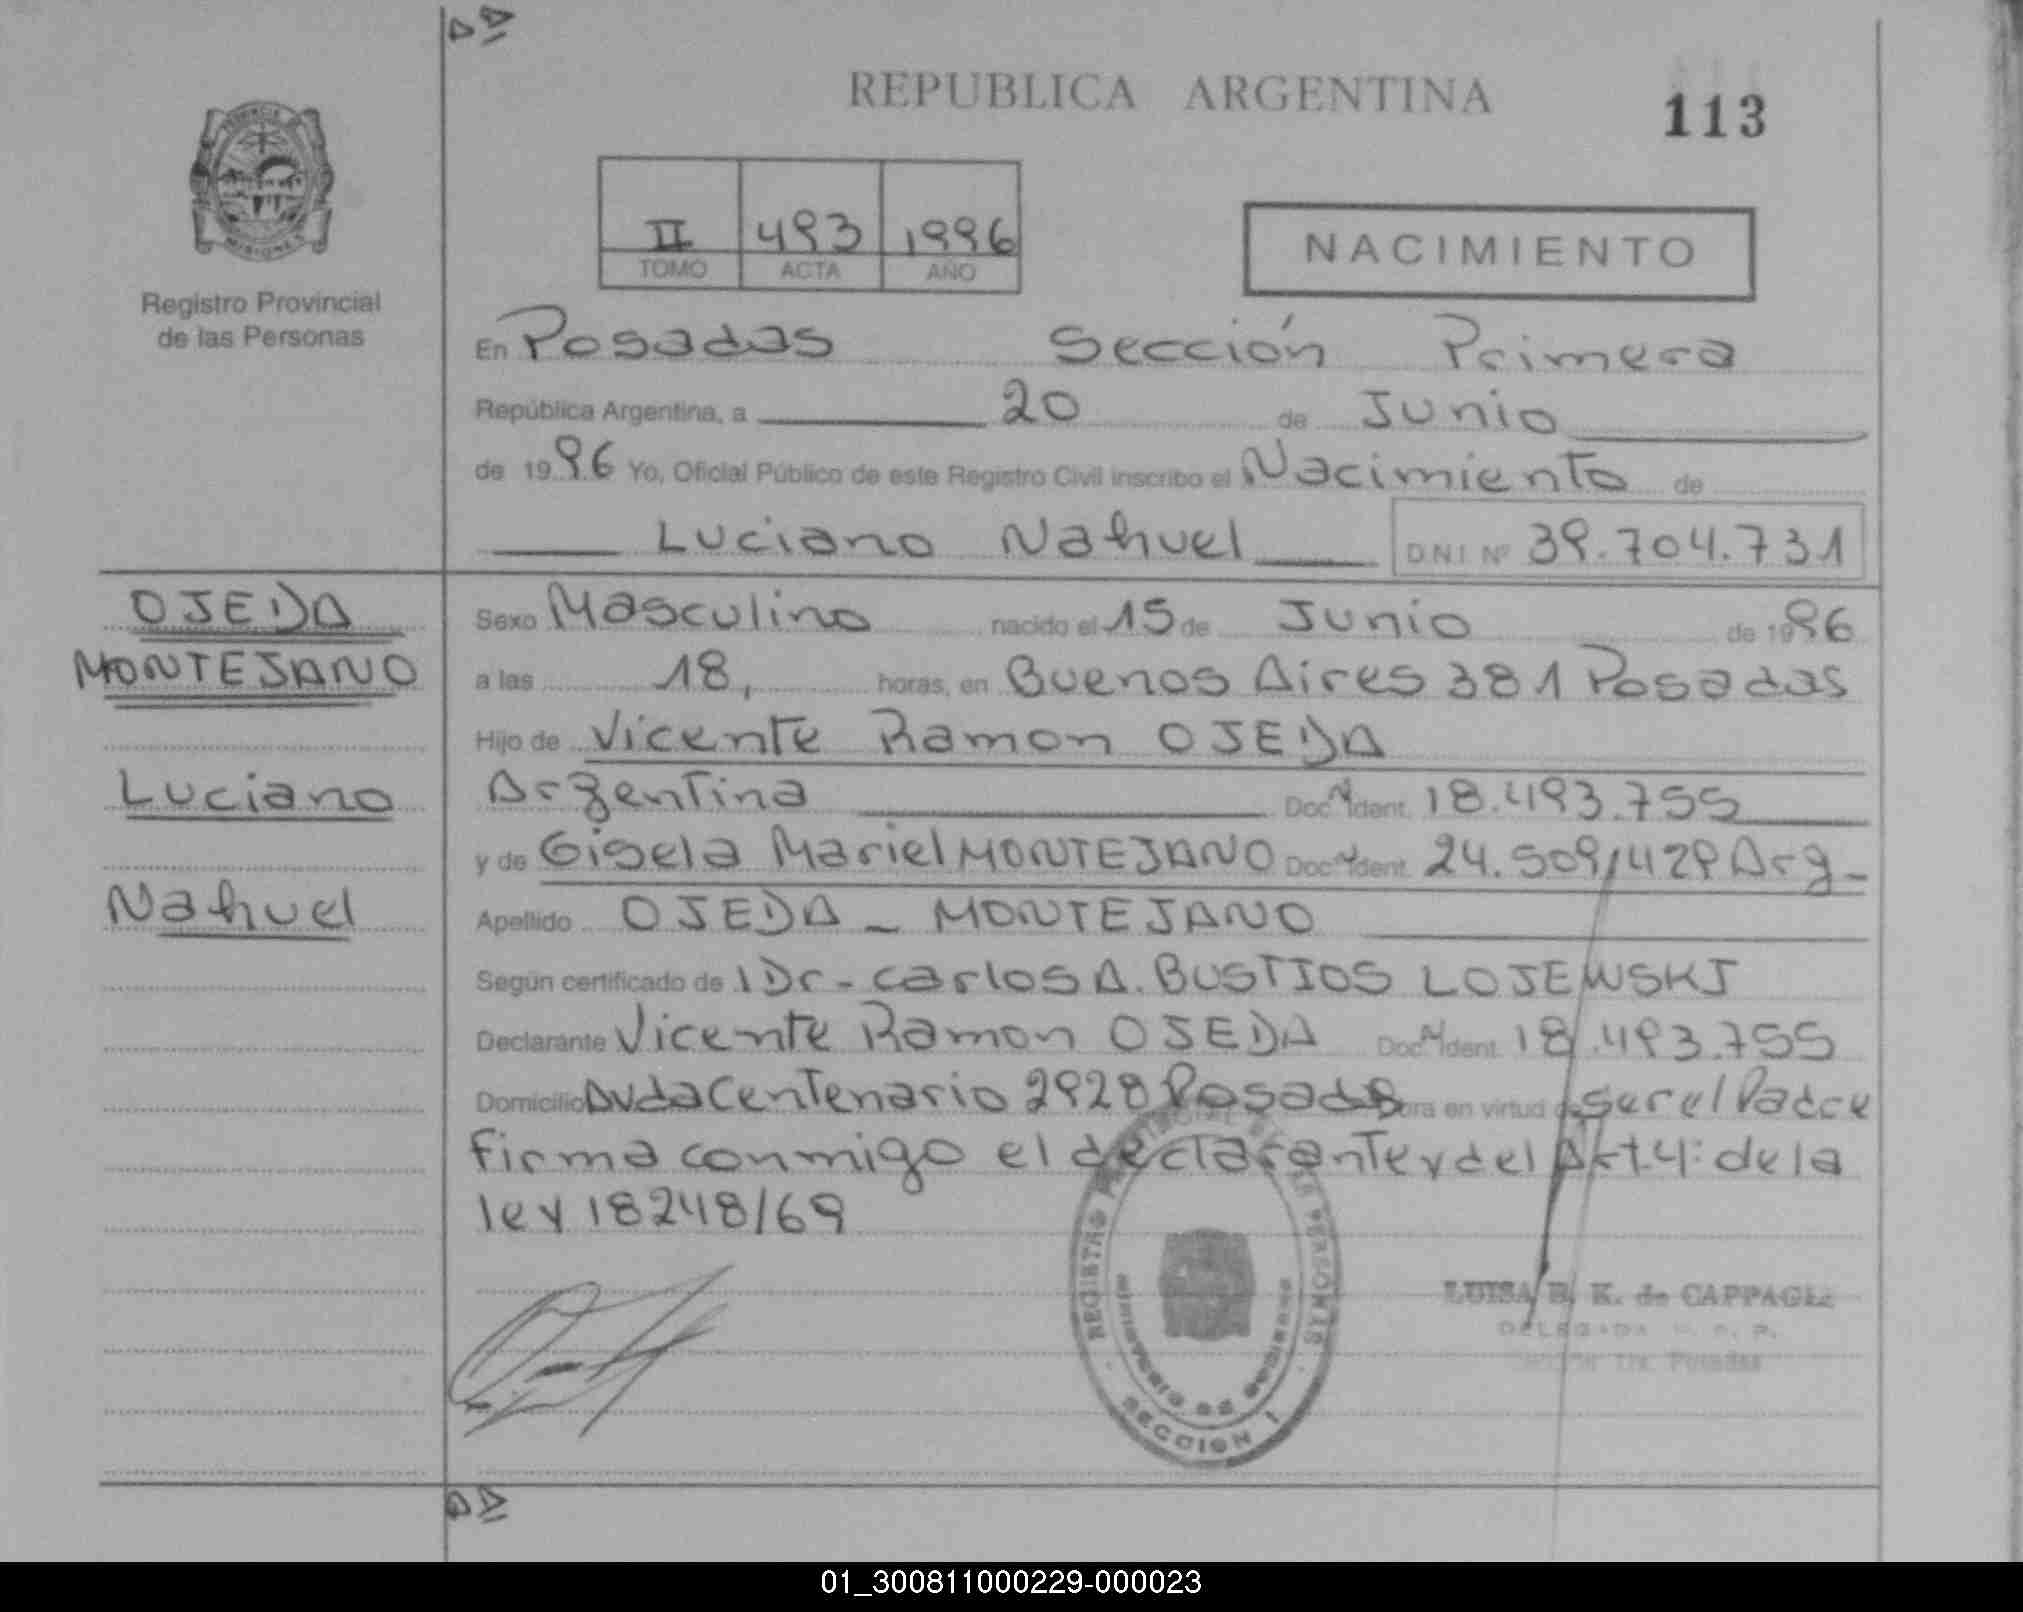 REPUBLICA ARGENTINA
113
II 493 1996
TOMO ACTA AÑO
NACIMIENTO
PROVINCIA
MISIONES
Registro Provincial
de las Personas
En Posadas Sección Primera
República Argentina, a 20 de Junio
de 1996 Yo, Oficial Público de este Registro Civil inscribo el Nacimiento de
Luciano Nahuel D.N.I Nº 39.704.731
OJEDA
MONTEJANO
Luciano
Nahuel
Sexo Masculino nacido el 15 de Junio de 1996
a las 18, horas, en Buenos Aires 381 Posadas
Hijo de Vicente Ramon OJEDA
Argentina Doc. Ident. 18.493.755
y de Gisela Mariel MONTEJANO Doc. Ident. 24.509/429 Arg-
Apellido OJEDA - MONTEJANO
Según certificado de l Dr - Carlos A. BUSTIOS LOJEWSKI
Declarante Vicente Ramon OJEDA Doc. Ident. 18.493.755
Domicilio Avda Centenario 2928 Posadas Obra en virtud de ser el Padre
firma conmigo el declarante y del Art. 4: de la
ley 18248/69
REGISTRO PROVINCIAL DE LAS PERSONAS
MINISTERIO DE GOBIERNO
SECCION I
LUISA B. K. de CAPPAGLI
DELEGADA R. P. P.
Sección 1ra. Posadas
01_300811000229-000023